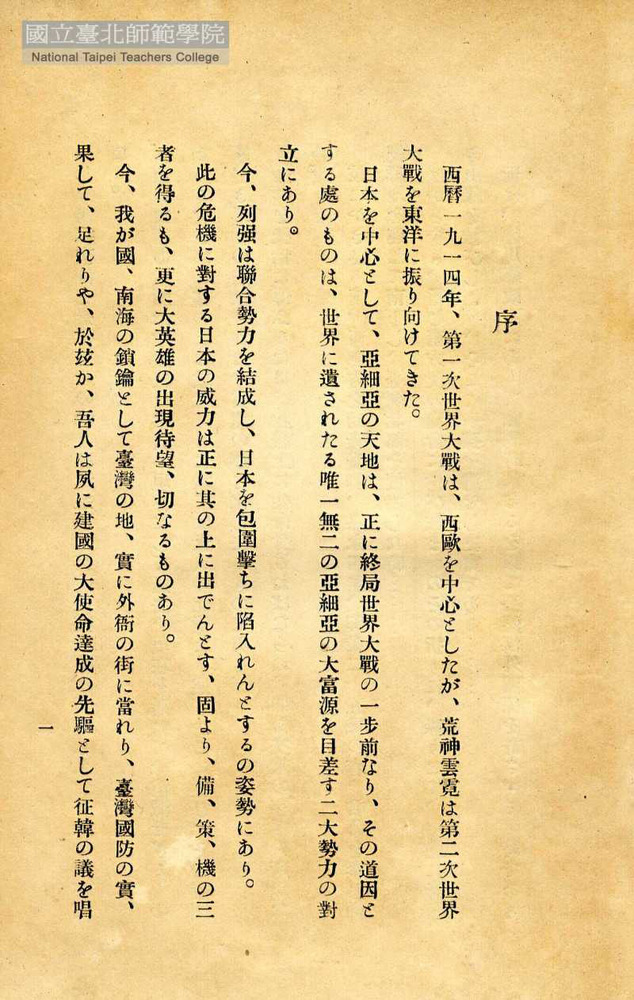 國立臺北師範學院
National Taipei Teachers College
序
西曆一九一四年、第一次世界大戰は、西歐を中心としたが、荒神雲霓は第二次世界
大戰を東洋に振り向けてきた。
日本を中心として、亞細亞の天地は、正に終局世界大戰の一步前なり、その道因と
する處のものは、世界に遺されたる唯一無二の亞細亞の大富源を目差す二大勢力の對
立にあり。
今、列强は聯合勢力を結成し、日本を包圍擊ちに陷入れんとするの姿勢にあり。
此の危機に對する日本の威力は正に其の上に出でんとす、固より、備、策、機の三
者を得るも、更に大英雄の出現待望、切なるものあり。
今、我が國、南海の鎖鑰として臺灣の地、實に外衙の街に當れり、臺灣國防の實、
果して、足れりや、於玆か、吾人は夙に建國の大使命達成の先驅として征韓の議を唱
一